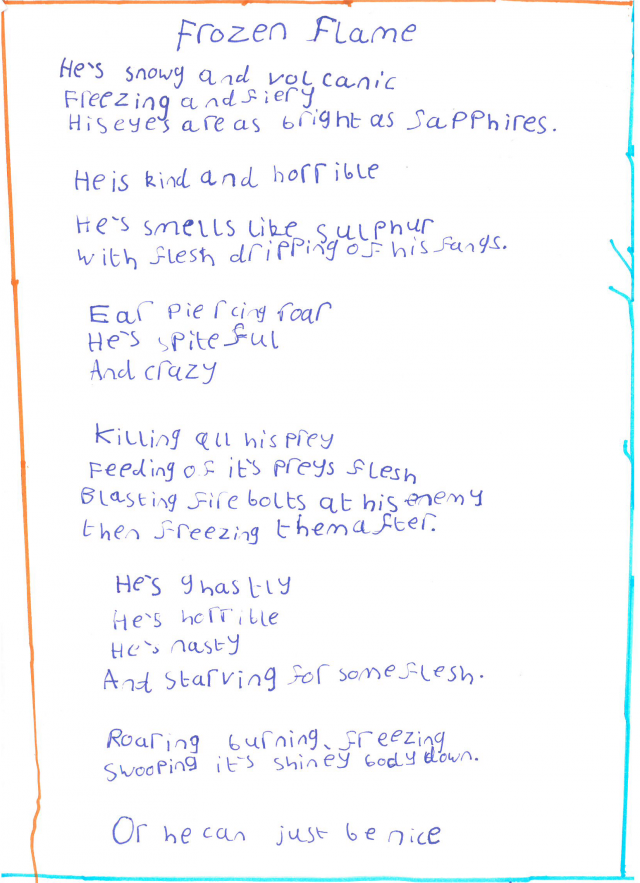 Frozen Flame
He's snowy and volcanic
Freezing and fiery
His eyes are as bright as sapphires.
He is kind and horrible
He's smells like sulphur
with flesh dripping of his fangs.
Ear piercing roar
He's spiteful
And crazy
Killing all his prey
Feeding of it's preys flesh
Blasting fire bolts at his enemy
then freezing them after.
He's ghastly
He's horrible
He's nasty
And starving for some flesh.
Roaring burning, freezing
Swooping it's shiney body down.
Or he can just be nice